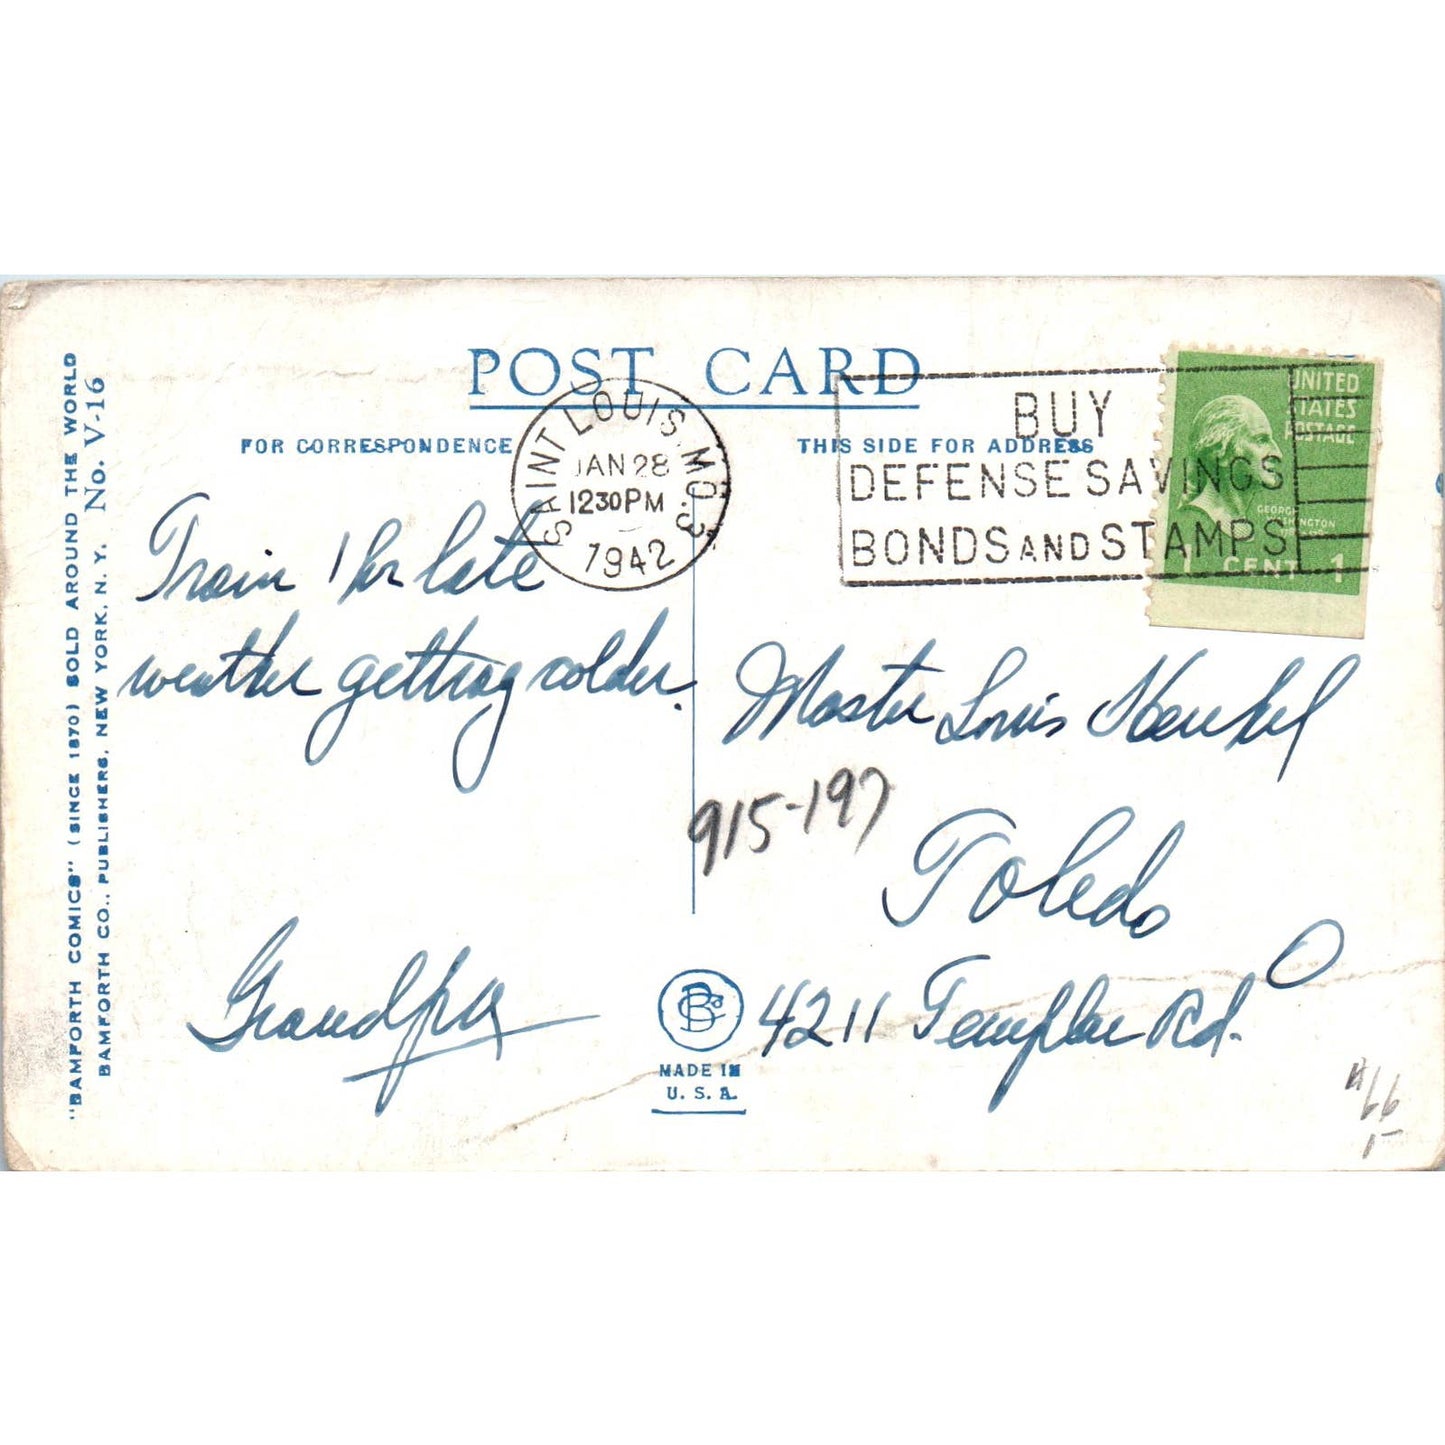 POST CARD
FOR CORRESPONDENCE
THIS SIDE FOR ADDRESS
"BAMFORTH COMICS" (SINCE 1870) SOLD AROUND THE WORLD
BAMFORTH CO., PUBLISHERS, NEW YORK, N. Y. No. V-16
SAINT LOUIS, MO. 3
JAN 28
12 30 PM
1942
BUY
DEFENSE SAVINGS
BONDS AND STAMPS
UNITED
STATES
POSTAGE
GEORGE
WASHINGTON
1 CENT 1
Train 1 hr late
weather getting colder.
Grandpa
Master Louis Henkel
915-197
Toledo
O
4211 Templar Rd.
MADE IN
U. S. A.
66